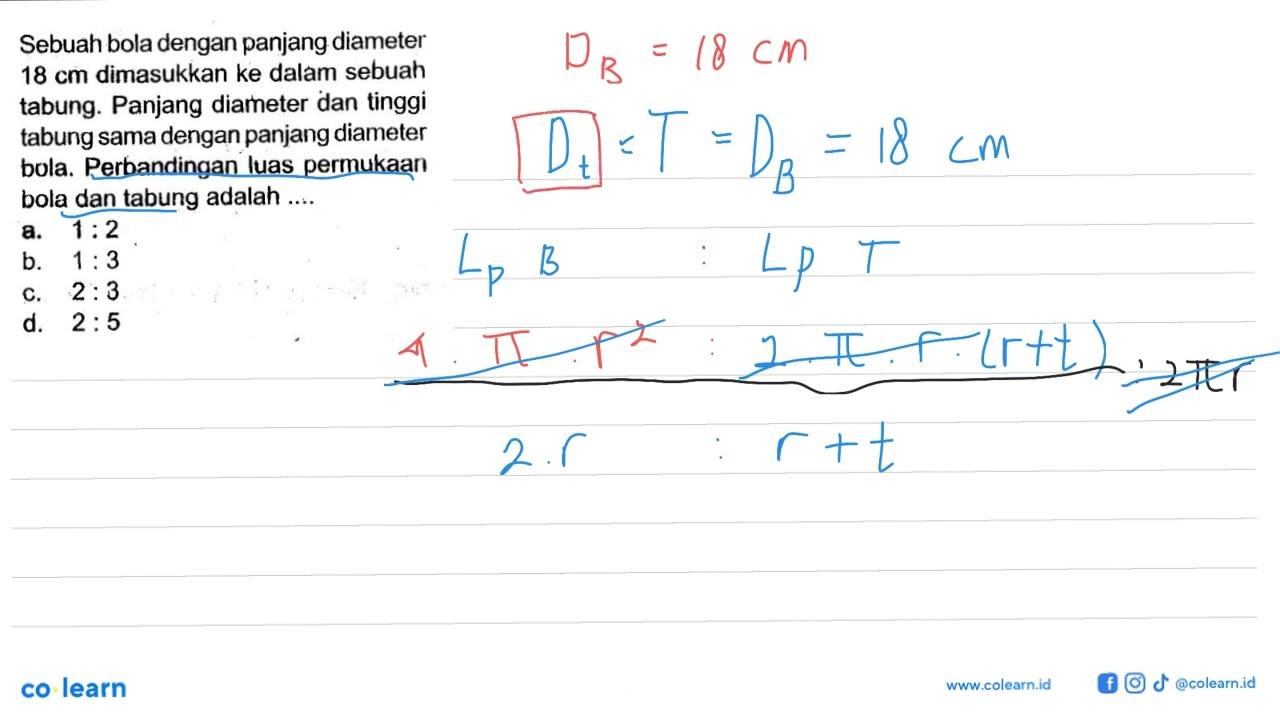 Sebuah bola dengan panjang diameter
18 cm dimasukkan ke dalam sebuah
tabung. Panjang diameter dan tinggi
tabung sama dengan panjang diameter
bola. Perbandingan luas permukaan
bola dan tabung adalah ....
a. 1 : 2
b. 1 : 3
c. 2 : 3
d. 2 : 5
D_B = 18 cm
D_t = T = D_B = 18 cm
L_p B : L_p T
4 . π . r² : 2 . π . r . (r + t) : 2πr
2 . r : r + t
co learn
www.colearn.id
@colearn.id